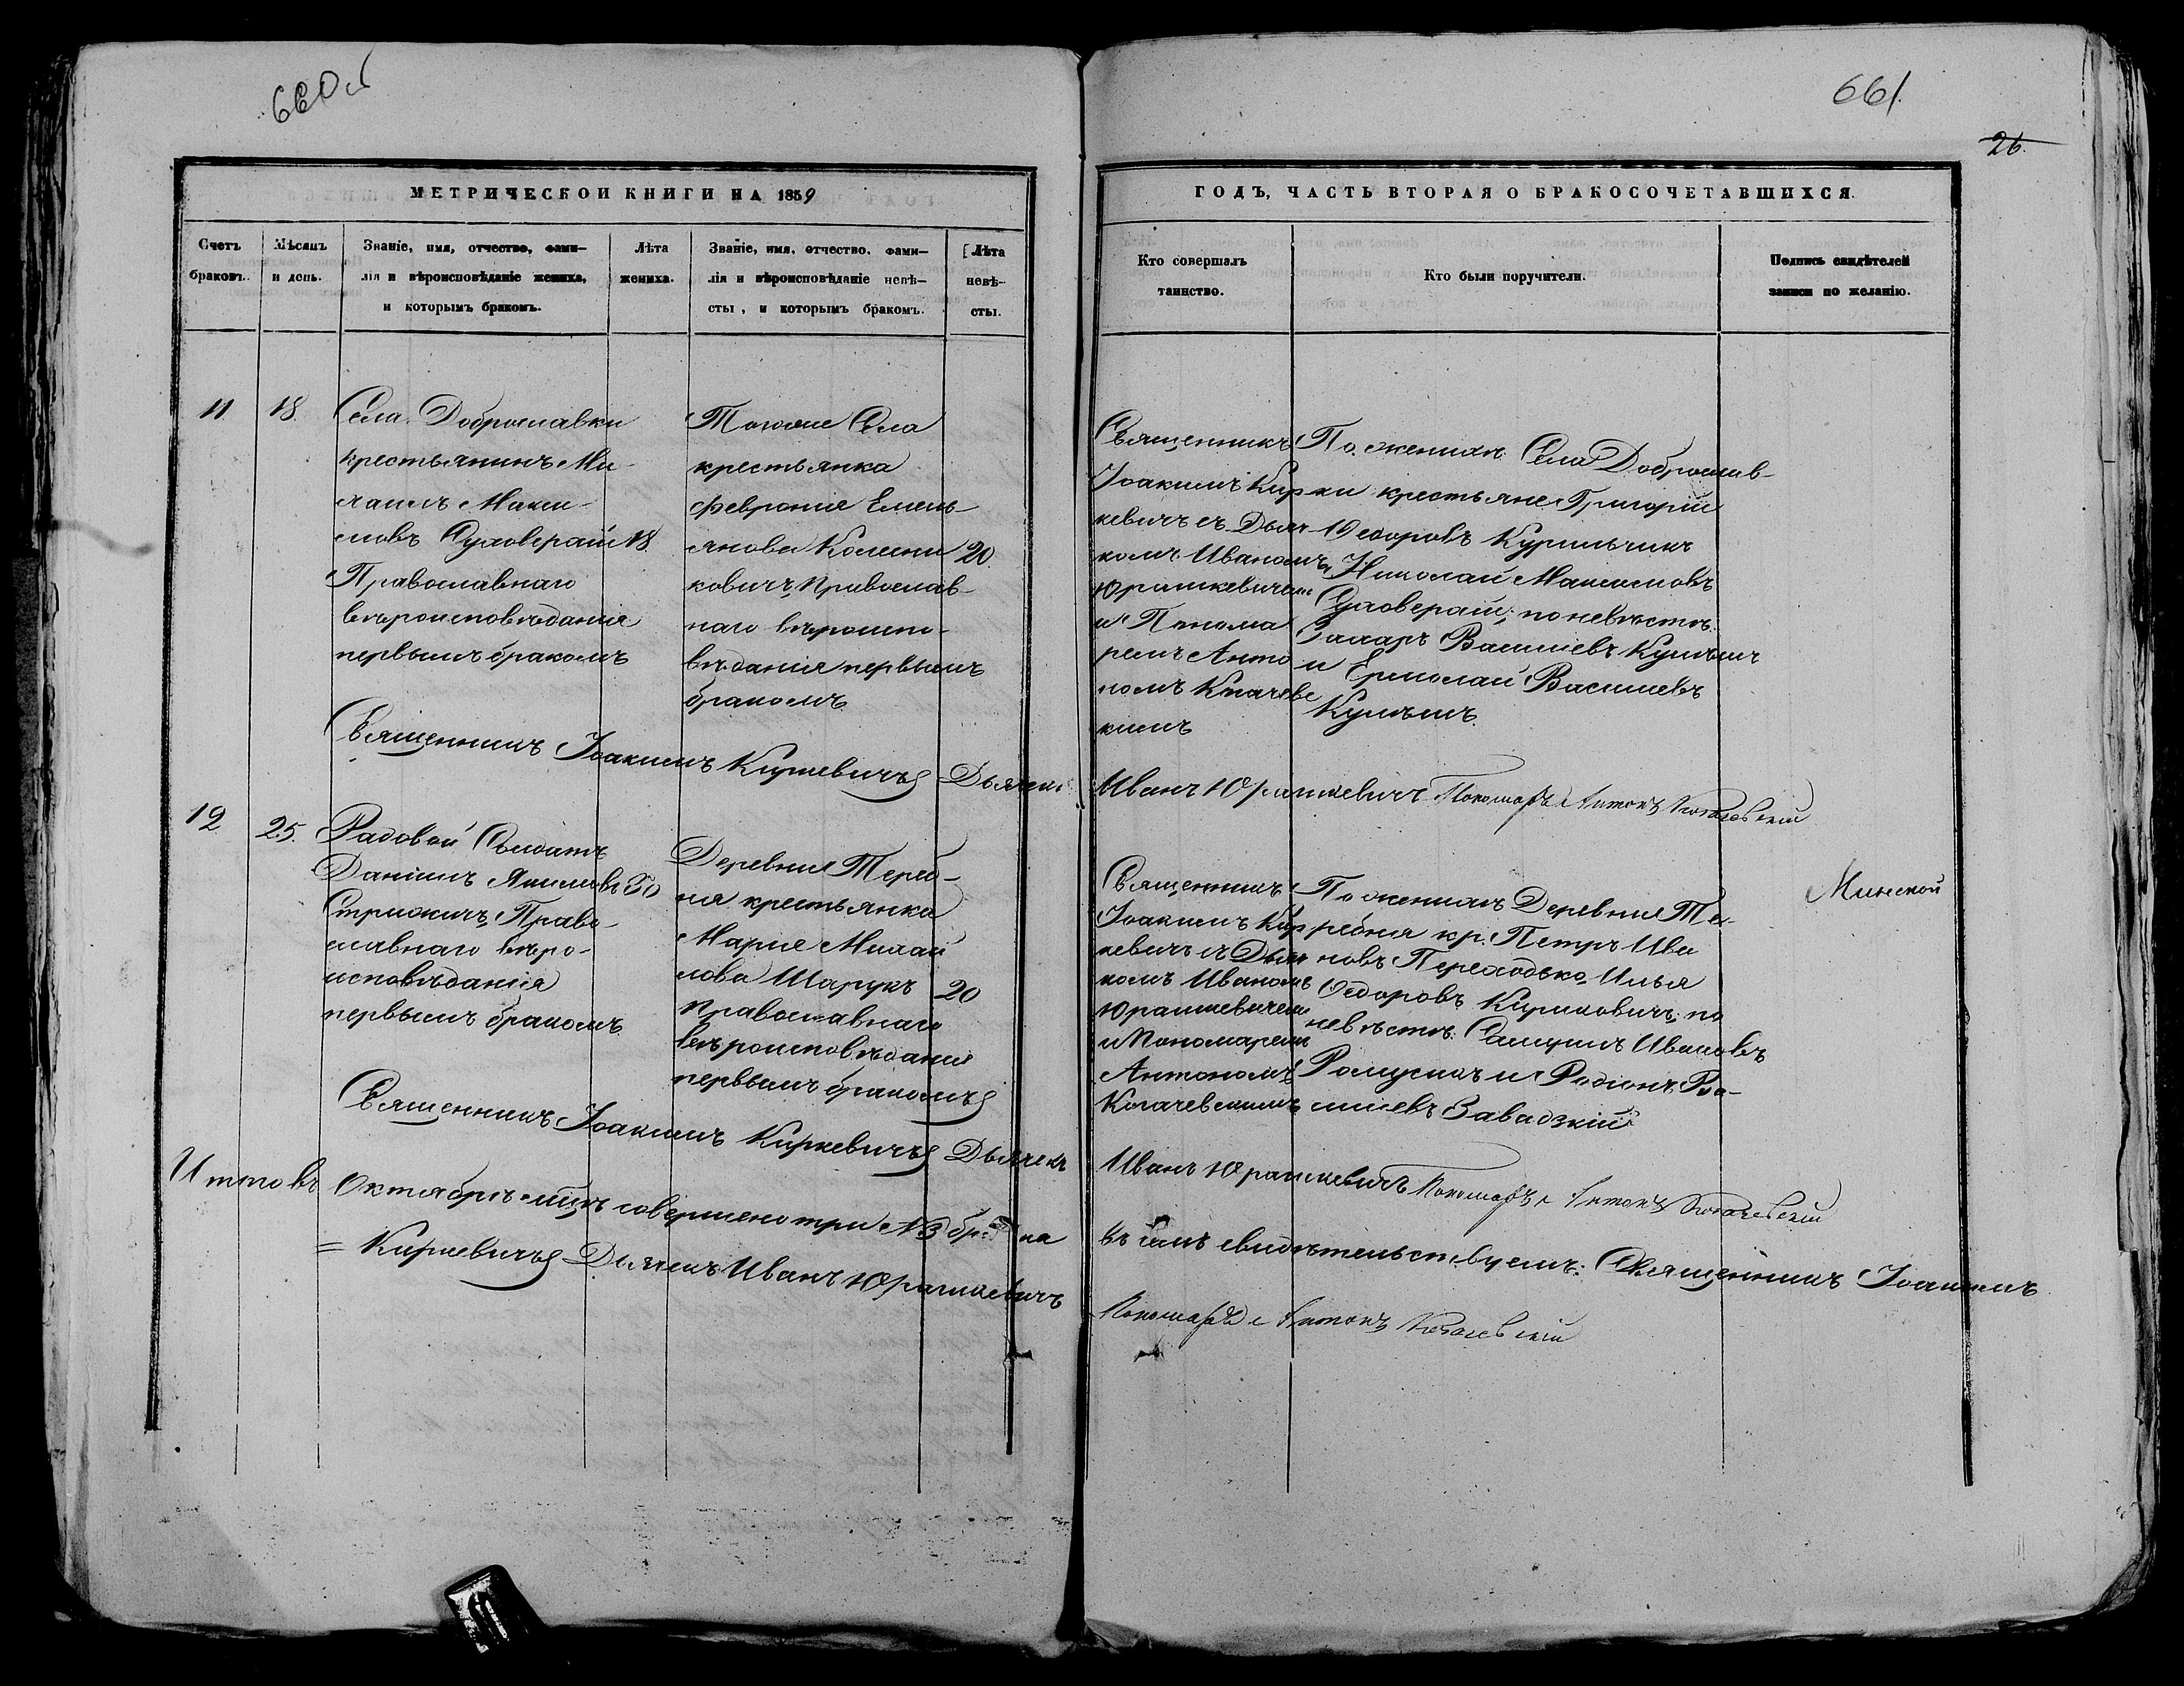 660об
661.
26.
МЕТРИЧЕСКОЙ КНИГИ НА 1859
ГОДЪ, ЧАСТЬ ВТОРАЯ О БРАКОСОЧЕТАВШИХСЯ.
Счетъ
браковъ.
Мѣсяцъ
и день.
Званіе, имя, отчество, фами-
лія и вѣроисповѣданіе жениха,
и которымъ бракомъ.
Лѣта
жениха.
Званіе, имя, отчество, фами-
лія и вѣроисповѣданіе невѣ-
сты, и которымъ бракомъ.
Лѣта
невѣ-
сты.
Кто совершалъ
таинство.
Кто были поручители.
Подпись свидѣтелей
записи по желанію.
11
18.
Села Доброславки
крестьянинъ Ми-
хаилъ Макси-
мовъ Суховерай
Православнаго
вѣроисповѣданія
первымъ бракомъ
18
Тогоже Села
крестьянка
Февронія Емель-
янова Колени
ковичъ, Православ-
наго вѣроиспо-
вѣданія первымъ
бракомъ.
20
Священникъ
Іоакимъ Кир
кевичъ съ Дьяч-
комъ Иваномъ
Юрашкевичемъ
и Понома
ремъ Анто
номъ Кгачевс
кимъ
По женихѣ: Села Доброслав-
ки крестьяне Григорій
Ѳедоровъ Курильчикъ
и Николай Максимовъ
Суховерай; по невѣстѣ:
Захаръ Васильевъ Кульшъ
и Ермолай Васильевъ
Кульшъ.
Священникъ Іоакимъ Киркевичъ Дьячекъ
Иванъ Юрашкевичъ Пономарь Антонъ Когачевскій
12
25.
Рядовой Солдатъ
Даніилъ Якимовъ
Стрижичъ, Право-
славнаго вѣро-
исповѣданія
первымъ бракомъ
30
Деревни Тереб-
ня крестьянка
Марія Михай
лова Шарукъ
Православнаго
вѣроисповѣданія
первымъ бракомъ
20
Священникъ
Іоакимъ Кир
кевичъ съ Дьяч
комъ Иваномъ
Юрашкевичемъ
и Пономаремъ
Антономъ
Когачевскимъ
По женихѣ Деревни Те-
ребня кр. Петръ Ива
новъ Переходько, Илья
Ѳедоровъ Кириковичъ; по
невѣстѣ: Самуилъ Ивановъ
Ромусикъ и Родіонъ Ва-
силіевъ Завадзкій
Минской
Священникъ Іоакимъ Киркевичъ Дьячекъ
Иванъ Юрашкевичъ Пономарь Антонъ Когачевскій
Итого въ Октябрѣ мцѣ совершено три №3 бра ка
въ чемъ свидѣтельствуемъ: Священникъ Іоакимъ
= Киркевичъ Дьячекъ Иванъ Юрашкевичъ
Пономарь Антонъ Когачевскій